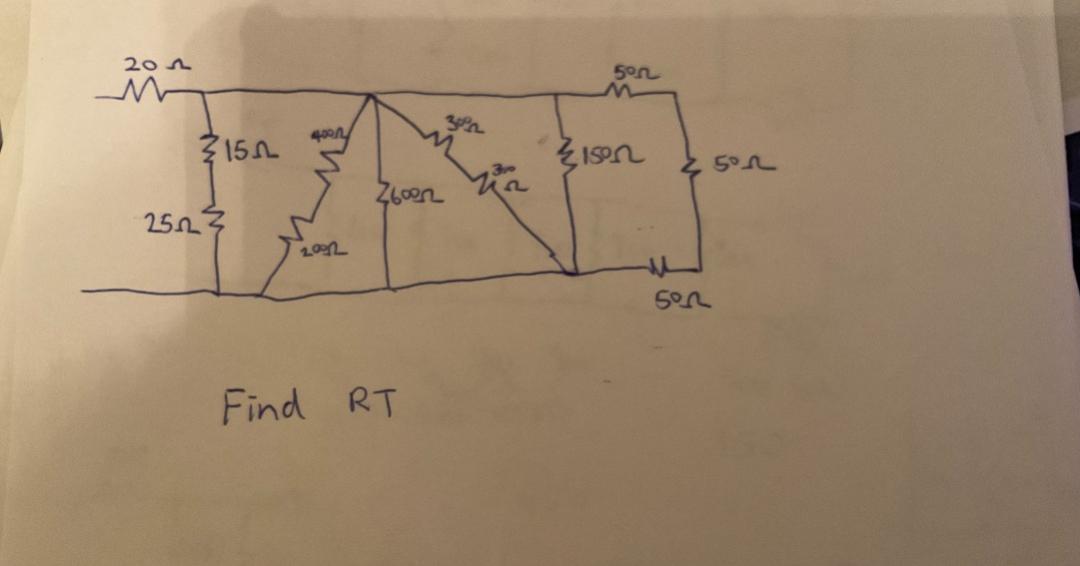 20 Ω
50Ω
15Ω
400Ω
300Ω
150Ω
50Ω
300
Ω
600Ω
25Ω
200Ω
50Ω
Find RT